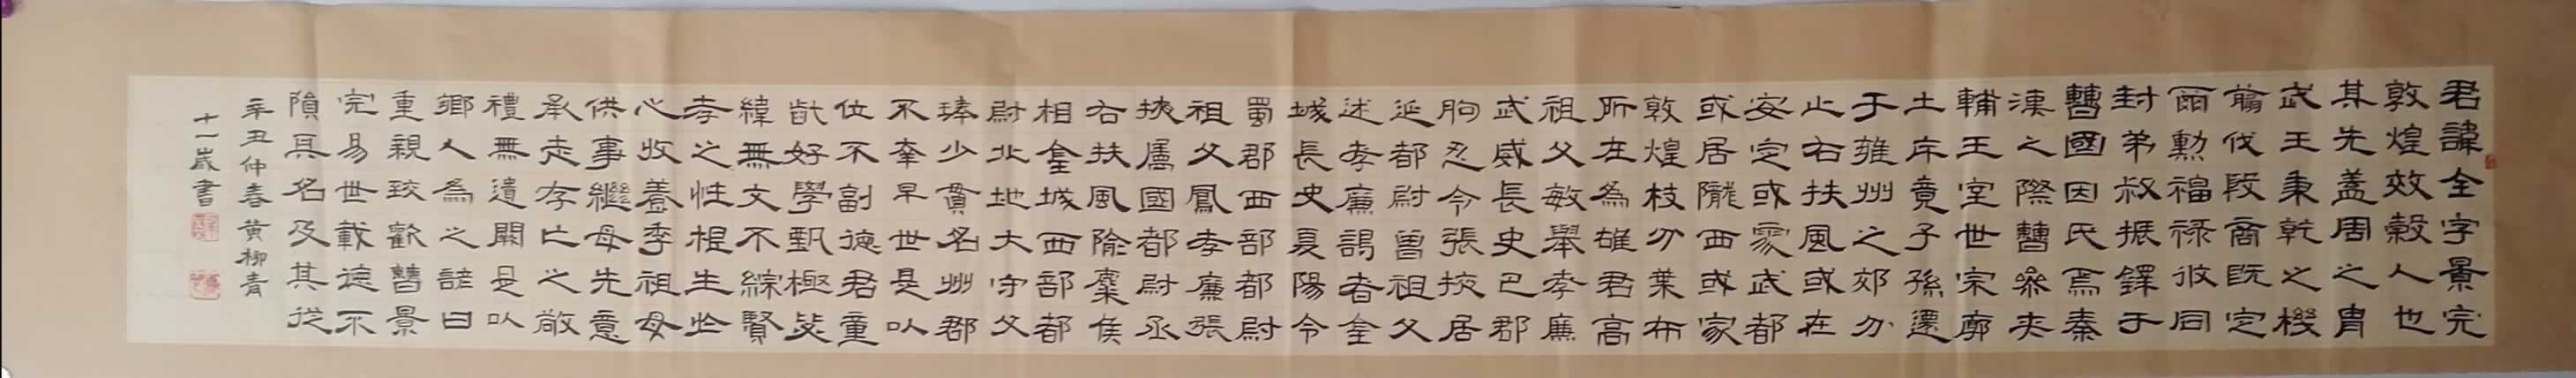 君諱全字景完
敦煌效穀人也
其先蓋周之胄
武王秉乾之機
翦伐殷商既定
爾勳福祿攸同
封弟叔振鐸于
曹國因氏焉秦
漢之際曹參夾
輔王室世宗廓
土斥竟子孫遷
于雍州之郊分
止右扶風或在
安定或處武都
或居隴西或家
敦煌枝分葉布
所在為雄君高
祖父敏舉孝廉
武威長史巴郡
朐忍令張掖居
延都尉曾祖父
述孝廉謁者金
城長史夏陽令
蜀郡西部都尉
祖父鳳孝廉張
掖屬國都尉丞
右扶風隃麋侯
相金城西部都
尉北地大守父
琫少貫名州郡
不幸早世是以
位不副德君童
齔好學甄極毖
緯無文不綜賢
孝之性根生於
心收養季祖母
供事繼母先意
承志存亡之敬
禮無遺闕是以
鄉人為之諺曰
重親致歡曹景
完易世載德不
隕其名及其從
辛丑仲春黄柳青
十一歲書